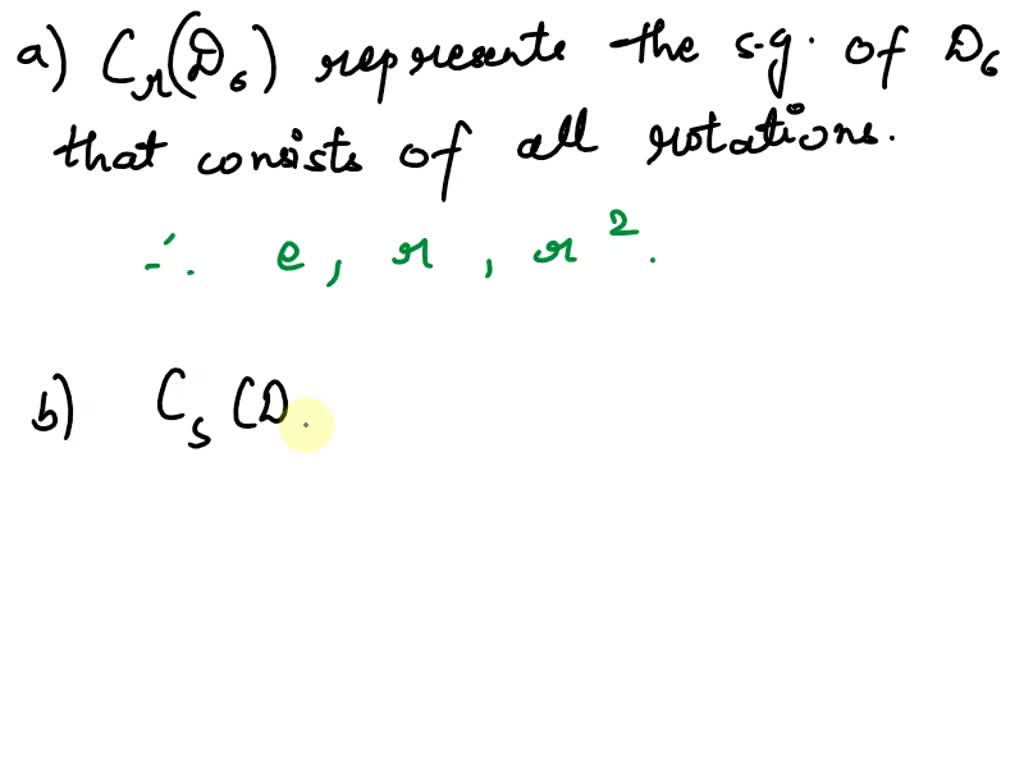 a) Cr(D6) represents the s.g. of D6
that consists of all rotations.
∴ e, r, r².
b) Cs (D